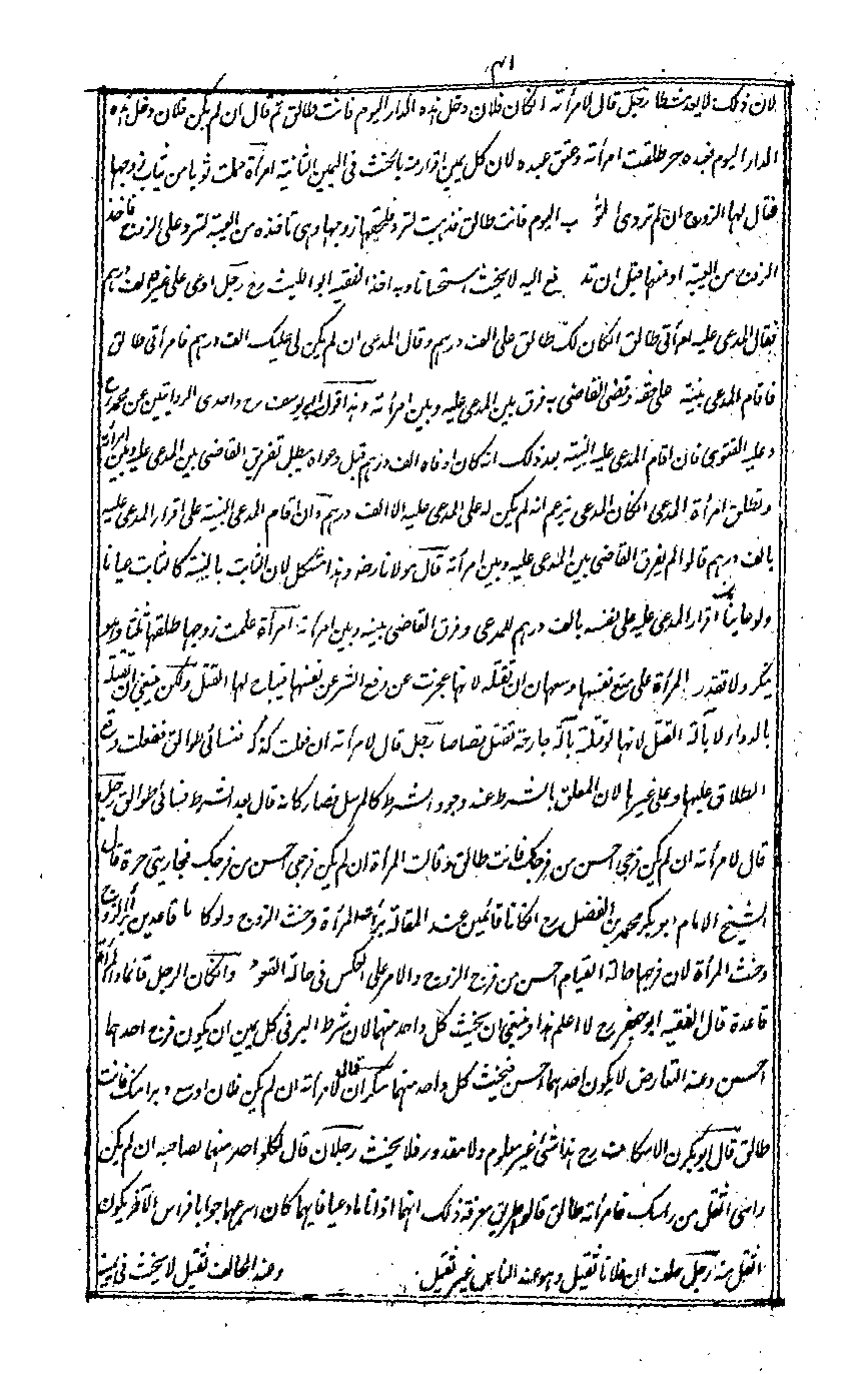 لان ذلك لا يعد شرطا رجل قال لامرأته ان كان فلان دخل هذه الدار اليوم فانت طالق ثم قال ان لم يكن فلان دخل هذه
الدار اليوم فعبده حر طلقت امرأته وعتق عبده لان كل يمين اقرار منه بالحنث في اليمين الثانية امرأة حملت ثوبا من ثياب زوجها
فقال لها الزوج ان لم تردى الثوب اليوم فانت طالق فذهبت لترد فلحقها زوجها وهى تأخذه من العيبة لترد على الزوج فاخذ
الزوج من العيبة او منها قبل ان تدفع اليه لا يحنث استحسانا وبه اخذ الفقيه ابو الليث رح رجل ادعى على غيره الف درهم
فقال المدعى عليه امرأتى طالق ان كان لك على الف درهم وقال المدعى ان لم يكن لى عليك الف درهم فامرأتى طالق
فاقام المدعى بينة على حقه وقضى القاضى به فرق بين المدعى عليه وبين امرأته وهذا قول ابى يوسف رح واحدى الروايتين عن محمد رح
وعليه الفتوى فان اقام المدعى عليه البينة بعد ذلك انه كان اوفاه الف درهم قبل دعواه بطل تفريق القاضى بين المدعى عليه وبين امرأته
وتطلق امرأة المدعى ان كان المدعى يزعم انه لم يكن له على المدعى عليه الا الف درهم وان اقام المدعى البينة على اقرار المدعى عليه
بالف درهم قالوا لم يفرق القاضى بين المدعى عليه وبين امرأته قال مولانا رضه وهذا مشكل لان الثابت بالبينة كالثابت عيانا
ولو عاينا اقرار المدعى عليه على نفسه بالف درهم للمدعى وفرق القاضى بينه وبين امرأته امرأة علمت زوجها طلقها ثلثا وهو
ينكر ولا تقدر المرأة على منع نفسها وسعها ان تقتله لانها عجزت عن دفع الشر عن نفسها فيباح لها القتل ولكن ينبغى ان تقتله
بالدواء لا بآلة القتل لانها لو قتلته بآلة جارحة تقتل قصاصا رجل قال لامرأته ان فعلت كذا فنسائى طوالق ففعلت وقع
الطلاق عليها وعلى غيرها لان المعلق بالشرط عند وجود الشرط كالمرسل فصار كانه قال بعد الشرط نسائى طوالق رجل
قال لامرأته ان لم يكن فرجى احسن من فرجك فانت طالق وقالت المرأة ان لم يكن فرجى احسن من فرجك فجاريتى حرة قال
الشيخ الامام ابو بكر محمد بن الفضل رح ان كانا قائمين عند المقالة برأت المرأة وحنث الزوج ولو كانا قاعدين بر الزوج
وحنثت المرأة لان فرجها حالة القيام احسن من فرج الزوج والامر على العكس فى حالة القعود وان كان الرجل قائما والمرأة
قاعدة قال الفقيه ابو جعفر رح لا اعلم هذا وينبغى ان يحنث كل واحد منهما لان شرط البر فى كل يمين ان يكون فرج احدهما
احسن وعند التعارض لا يكون احدهما احسن فيحنث كل واحد منهما سكران قال لامرأته ان لم يكن فلان اوسع دبرا منك فانت
طالق قال ابو بكر الاسكاف رح هذا شئ غير معلوم ولا مقدور فلا يحنث رجلان قال كل واحد منهما لصاحبه ان لم يكن
راسى اثقل من راسك فامرأته طالق قالوا طريق معرفة ذلك انهما اذا ناما دعيا فايهما كان اسرعهما جوابا فراس الآخر يكون
اثقل منه رجل حلف ان فلانا ثقيل وهو عند الناس غير ثقيل وعند الحالف ثقيل لا يحنث فى يمينه